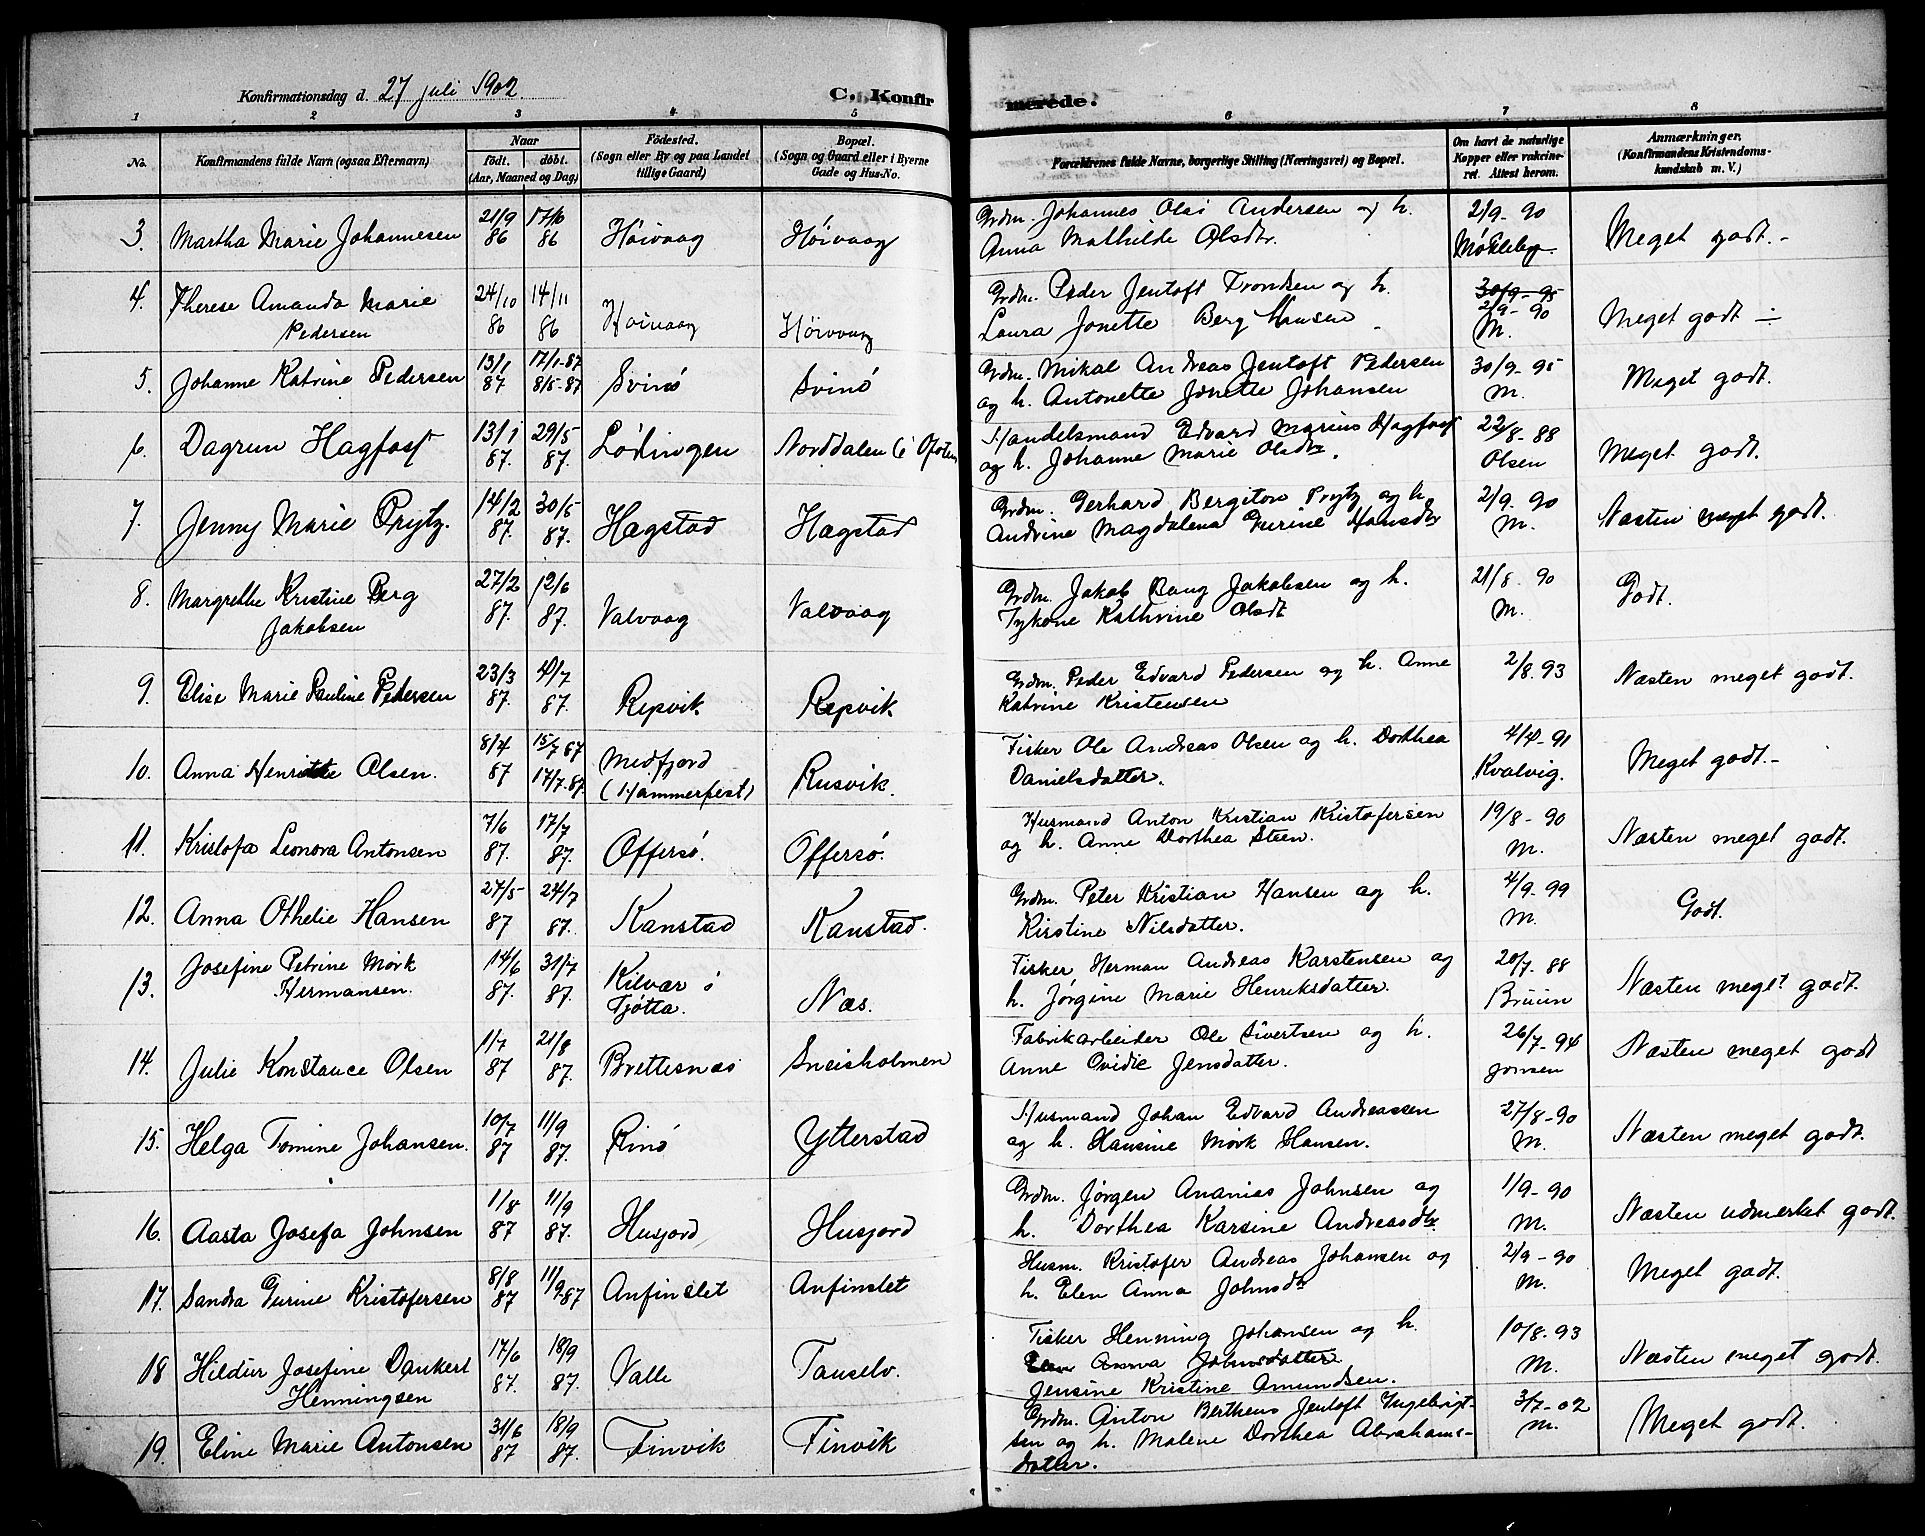 Konfirmationsdag d. 27 juli 1902.
C. Konfirmerede.
1 2 3 4 5 6 7 8
No.
Konfirmandens fulde Navn (ogsaa Efternavn)
Naar
födt. döbt.
(Aar, Maaned og Dag)
Födested.
(Sogn eller By og paa Landet
tillige Gaard)
Bopæl.
(Sogn og Gaard eller i Byerne
Gade og Hus-No.
Forældrenes fulde Navne, borgerlige Stilling (Næringsvei) og Bopæl.
Om havt de naturlige
Kopper eller vakcine-
ret. Attest herom.
Anmærkninger.
(Konfirmandens Kristendoms-
kundskab m. V.)
3. Martha Marie Johannesen 21/9 86 Höivaag Höivaag Grdm. Johannes Olai Andersen og h.
Anna Mathilde Olsdtr. 2/9-90 Møkleby. Meget godt.-
4. Therese Amanda Marie
Pedersen 24/10 86 14/11 86 Höivaag Höivaag Grdm. Peder Jentoft Trondsen og h.
Laura Jonette Berg Hansen 30/9-95 2/9-90 M. Meget godt
5. Johanne Katrine Pedersen 13/1 87 17/1-87 8/5-87 Svinö Svinö Grdm. Mikal Andreas Jentoft Pedersen
og h. Antonette Jonette Johansen 30/9-95 M. Meget godt.
6. Dagrun Hagfost 13/1 87. 29/5 87. Lödingen Norddalen (i Ofoten Handelsmand Edvard Marius Hagfost
og h. Johanne Marie Olsdtr. 22/8-88 Olsen Meget godt.
7. Jenny Marie Prytz. 14/2 87. 30/5 87. Hægstad Hægstad Grdm. Gerhard Bergiton Prytz og h.
Andrine Magdalena Gurine Hansdtr 2/9.90 M. Næsten meget godt.
8. Margrethe Kristine Berg
Jakobsen 27/2 87. 12/6 87. Valvaag Valvaag Grdm. Jakob Bang Jakobsen og h.
Kathrine Olsdt 21/8.90 M. Godt.
9. Elise Marie Pauline Pedersen 23/3 87. 4/7 87. Repvik Repvik Grdm. Peder Edvard Pedersen og h. Anne
Katrine Kristensen 2/8.93 Næsten meget godt.
10. Anna Henriette Olsen. 8/4 87 15/7 87 17/7.87. Medfjord
(Hammerfest) Rusvik. Fisker Ole Andreas Olsen og h. Dorthea
Danielsdatter. 4/4-91 Kvalvig. Meget godt.-
11. Kristofa Leonora Antonsen 7/6 87. 17/7 87. Offersö. Offersö. Husmand Anton Kristian Kristofersen
og h. Anne Dorthea Steen. 19/8-90 M. Næsten meget godt.
12. Anna Othelie Hansen 27/5 87 24/7 87. Kanstad Kanstad. Grdm. Peter Kristian Hansen og h.
Kirstine Nilsdatter. 4/9.99 M. Godt.
13. Josefine Petrine Mörk
Hermansen. 14/6 87. 31/7 87. Kilvær i
Tjötta. Næs. Fisker Herman Andreas Karstensen og
h. Jörgine Marie Henriksdatter. 20/7.88 Bruun Næsten meget godt.
14. Julie Konstance Olsen 1/7 87 21/8 87. Brettesnæs Sneisholmen Fabrikarbeider Ole Sivertsen og h.
Anne Ovidie Jensdatter. 26/7-94 Jonsen Næsten meget godt
15. Helga Tomine Johansen. 10/7 87 11/9 87. Rinö Ytterstad Husmand Johan Edvard Andreassen
og h. Hansine Mörk Hansen. 27/8-90 M. Næsten meget godt.
16. Aasta Josefa Johnsen 1/8 87 11/9 87. Husjord Husjord Grdm. Jörgen Ananias Johnsen og
h. Dorthea Karsine Andreasdtr. 1/9-90 M. Næsten udmerket godt.
17. Sandra Gurine Kristofersen 8/8 87 11/9.87 Anfinslet Anfinslet Husm. Kristofer Andreas Johansen og
h. Elen Anna Johnsdtr 2/9-90 M. Meget godt.
18 Hildur Josefine Dankert
Henningsen 17/6 87. 18/9 87. Valle Tanselv. Fisker Henning Johansen og h.
Elen Anna Johnsdatter
Jensine Kristine Amundsen. 10/8.93 M. Næsten meget godt.
19. Eline Marie Antonsen 31/6 87 18/9 87. Finvik Finvik Grdm. Anton Bertheus Jentoft Ingebrigt-
sen og h. Malene Dorthea Abrahams-
datter. 3/7-02 M. Meget godt.